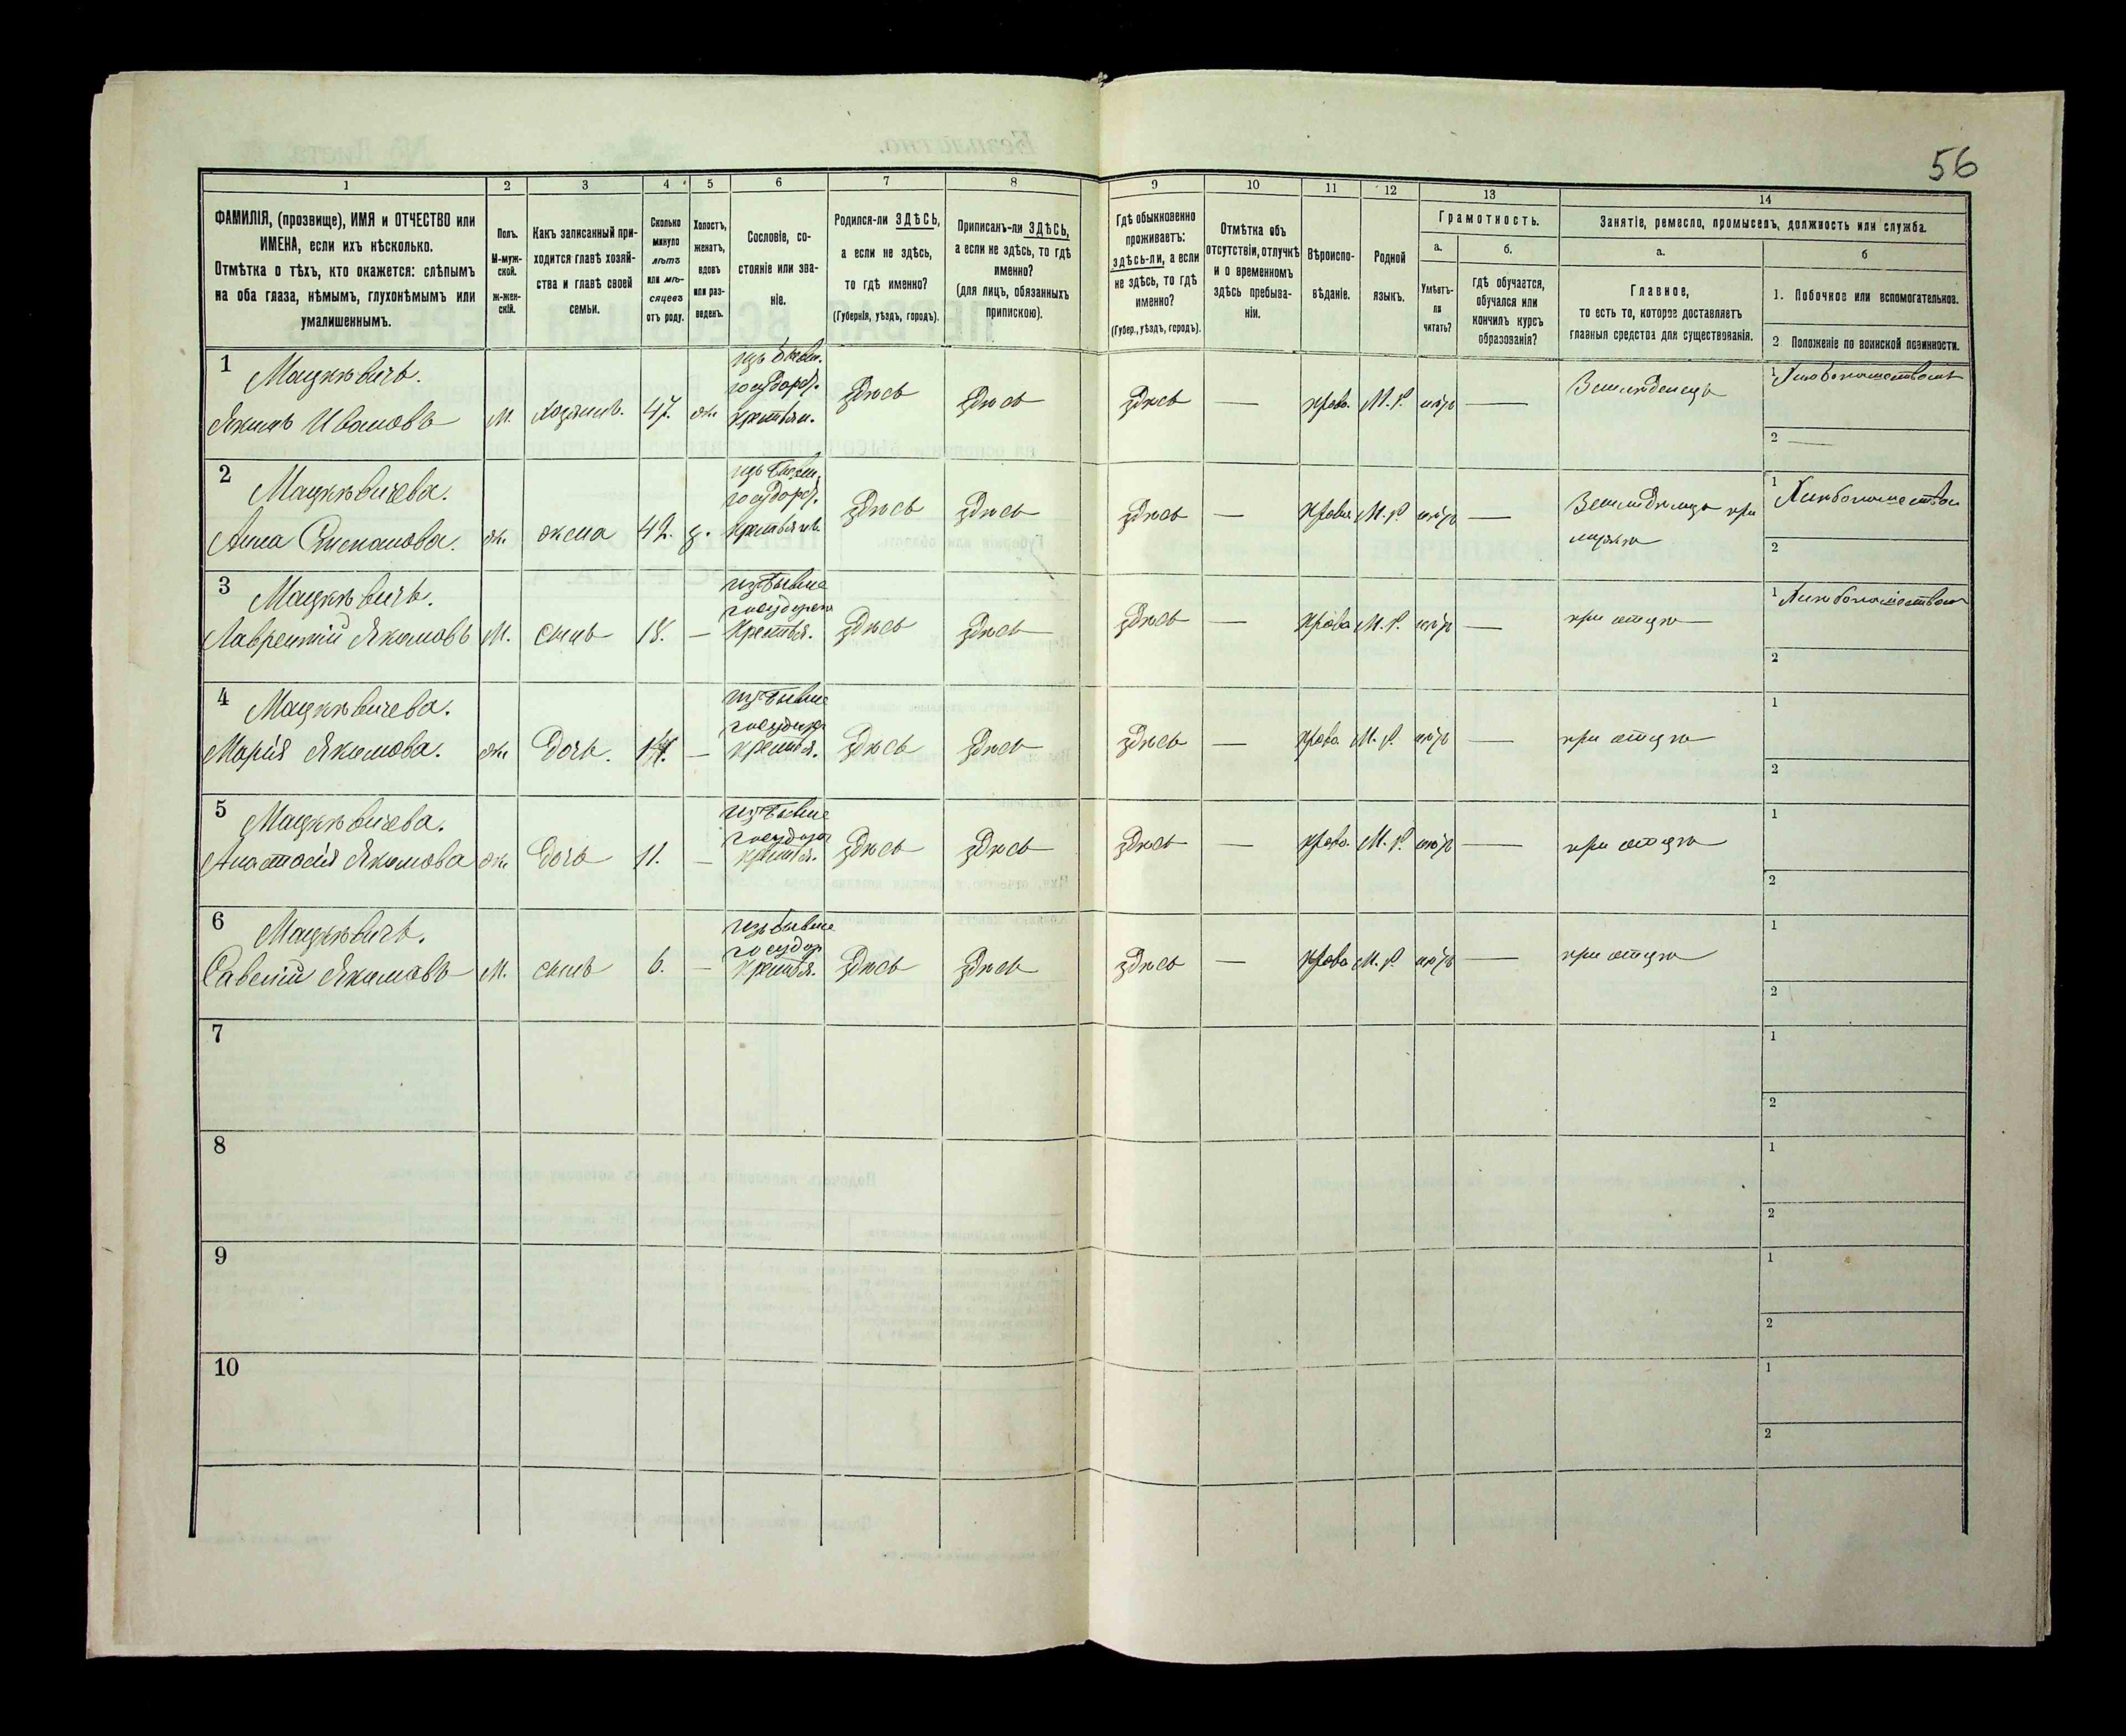 56
1
2
3
4
5
6
7
8
9
10
11
12
13
14
ФАМИЛІЯ, (прозвище), ИМЯ и ОТЧЕСТВО или
ИМЕНА, если ихъ нѣсколько.
Отмѣтка о тѣхъ, кто окажется: слѣпымъ
на оба глаза, нѣмымъ, глухонѣмымъ или
умалишеннымъ.
Полъ.
М-муж-
ской.
ж-жен-
скій.
Какъ записанный при-
ходится главѣ хозяй-
ства и главѣ своей
семьи.
Сколько
минуло
лѣтъ
или мѣ-
сяцевъ
отъ роду.
Холостъ,
женатъ,
вдовъ
или раз-
веденъ.
Сословіе, со-
стояніе или зва-
ніе.
Родился-ли ЗДѢСЬ,
а если не здѣсь,
то гдѣ именно?
(Губернія, уѣздъ, городъ).
Приписанъ-ли ЗДѢСЬ,
а если не здѣсь, то гдѣ
именно?
(для лицъ, обязанныхъ
припискою).
Гдѣ обыкновенно
проживаетъ:
здѣсь-ли, а если
не здѣсь, то гдѣ
именно?
(Губер., уѣздъ, городъ).
Отмѣтка объ
отсутствіи, отлучкѣ
и о временномъ
здѣсь пребыва-
ніи.
Вѣроиспо-
вѣданіе.
Родной
языкъ.
Грамотность.
а.
Умѣетъ-
ли
читать?
б.
гдѣ обучается,
обучался или
кончилъ курсъ
образованія?
Занятіе, ремесло, промыселъ, должность или служба.
а.
Главное,
то есть то, которое доставляетъ
главныя средства для существованія.
б
1. Побочное или вспомогательное.
2 Положеніе по воинской повинности.
1
Мацкѣвичъ.
Якимъ Ивановъ
М.
хозяинъ.
47.
ж.
изъ бывш.
государ.
крестьян.
здѣсь
здѣсь
здѣсь
—
право.
М. Р.
нѣтъ
—
Земледѣлецъ
1
2 —
2
Мацкѣвичева.
Анна
ж.
жена
42.
з.
изъ бывш.
государ.
здѣсь
здѣсь
здѣсь
—
М. Р.
нѣтъ
—
при
мужѣ
1
2
3
Мацкѣвичъ.
Лаврентій Якимовъ
М.
сынъ
18.
—
изъ бывше
крестья.
здѣсь
здѣсь
здѣсь
—
право
М. Р.
нѣтъ
—
при отцѣ
1
2
4
Мацкѣвичева.
Марія Якимова.
ж.
дочь.
—
изъ бывше
крестья.
здѣсь
здѣсь
здѣсь
—
право.
М. Р.
нѣтъ
—
при отцѣ
1
2
5
Мацкѣвичева.
Анастасія Якимова
ж.
дочь
11.
—
изъ бывше
крестья.
здѣсь
здѣсь
здѣсь
—
право.
М. Р.
нѣтъ
—
при отцѣ
1
2
6
Мацкѣвичъ.
Савелій Якимовъ
М.
сынъ
6.
—
изъ бывше
государ
крестья.
здѣсь
здѣсь
здѣсь
—
право
М. Р.
нѣтъ
—
при отцѣ
1
2
7
1
2
8
1
2
9
1
2
10
1
2